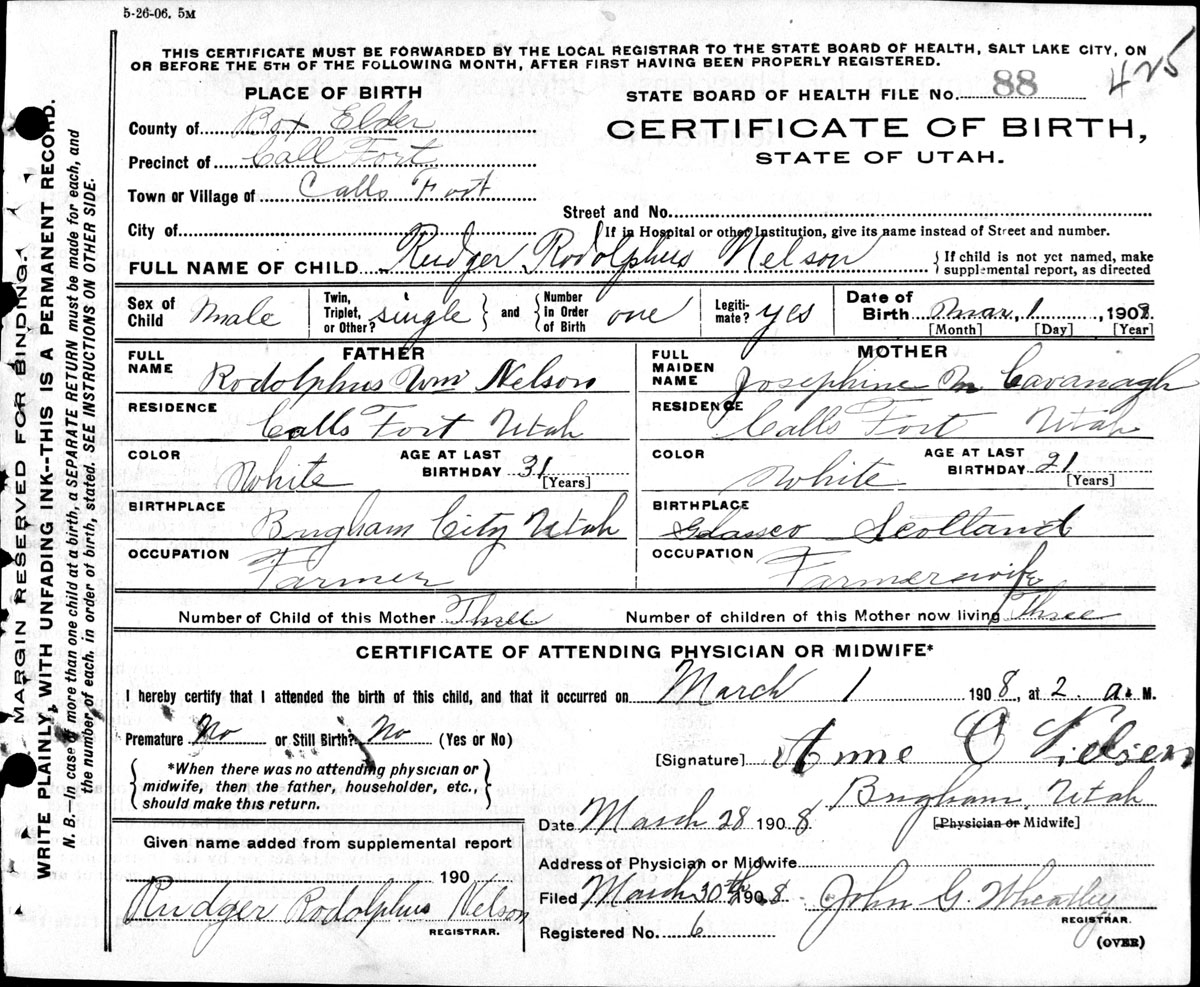 5-26-06. 5M
THIS CERTIFICATE MUST BE FORWARDED BY THE LOCAL REGISTRAR TO THE STATE BOARD OF HEALTH, SALT LAKE CITY, ON
OR BEFORE THE 5TH OF THE FOLLOWING MONTH, AFTER FIRST HAVING BEEN PROPERLY REGISTERED.
425
PLACE OF BIRTH
STATE BOARD OF HEALTH FILE No. 88
County of Box Elder
CERTIFICATE OF BIRTH,
Precinct of Call Fort
STATE OF UTAH.
Town or Village of Calls Fort
Street and No.
City of
If in Hospital or other Institution, give its name instead of Street and number.
FULL NAME OF CHILD Rudger Rodolphus Nelson
If child is not yet named, make
supplemental report, as directed
Sex of Child Male
Twin, Triplet, or Other? single
and Number in Order of Birth one
Legitimate? yes
Date of Birth Mar, 1, 1908
[Month] [Day] [Year]
FATHER
FULL NAME Rodolphus Wm Nelson
RESIDENCE Calls Fort Utah
COLOR White
AGE AT LAST BIRTHDAY 31 [Years]
BIRTHPLACE Brigham City Utah
OCCUPATION Farmer
MOTHER
FULL MAIDEN NAME Josephine M Cavanagh
RESIDENCE Calls Fort Utah
COLOR White
AGE AT LAST BIRTHDAY 21 [Years]
BIRTHPLACE Glassco Scotland
OCCUPATION Farmerswife
Number of Child of this Mother Three
Number of children of this Mother now living Three
CERTIFICATE OF ATTENDING PHYSICIAN OR MIDWIFE*
I hereby certify that I attended the birth of this child, and that it occurred on March 1 1908, at 2 a. M.
Premature No or Still Birth? No (Yes or No)
*When there was no attending physician or
midwife, then the father, householder, etc.,
should make this return.
[Signature] Anne C Nelsen
Brigham, Utah
[Physician or Midwife]
Date March 28 1908
Given name added from supplemental report
190
Rudger Rodolphus Nelson
REGISTRAR.
Address of Physician or Midwife
Filed March 30th 1908 John G. Wheatley
REGISTRAR.
Registered No. 6
(OVER)
MARGIN RESERVED FOR BINDING.
WRITE PLAINLY, WITH UNFADING INK--THIS IS A PERMANENT RECORD.
N. B.--In case of more than one child at a birth, a SEPARATE RETURN must be made for each, and
the number of each, in order of birth, stated. SEE INSTRUCTIONS ON OTHER SIDE.